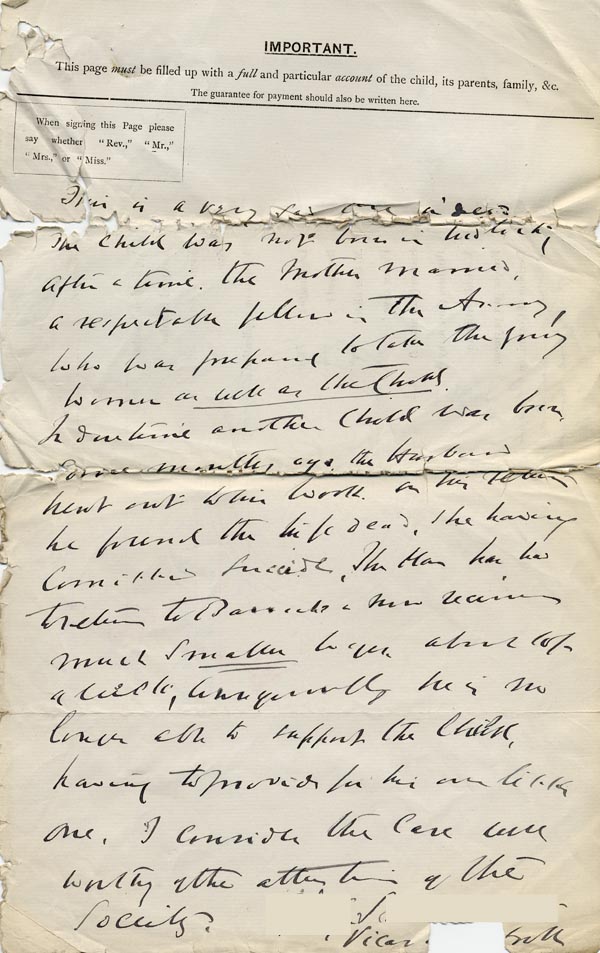 IMPORTANT.
This page must be filled up with a full and particular account of the child, its parents, family, &c.
The guarantee for payment should also be written here.
When signing this Page please
say whether "Rev.," "Mr.,"
"Mrs.," or "Miss."
This is a very sad one indeed
The Child was not born in wedlock,
after a time. the Mother married,
a respectable fellow in the Army,
who was prepared to take the young
woman as well as the Child.
In due time another Child was born.
Some months ago, the Husband
went out to his work. on his return
he found the wife dead, She having
Committed Suicide, The Man has had
to return to Barracks & now receives
much Smaller wages about
a week, Consequently he is no
longer able to support the Child,
having to provide for his own little
one. I consider the Case well
worthy of the attention of the
Society.
Vicar